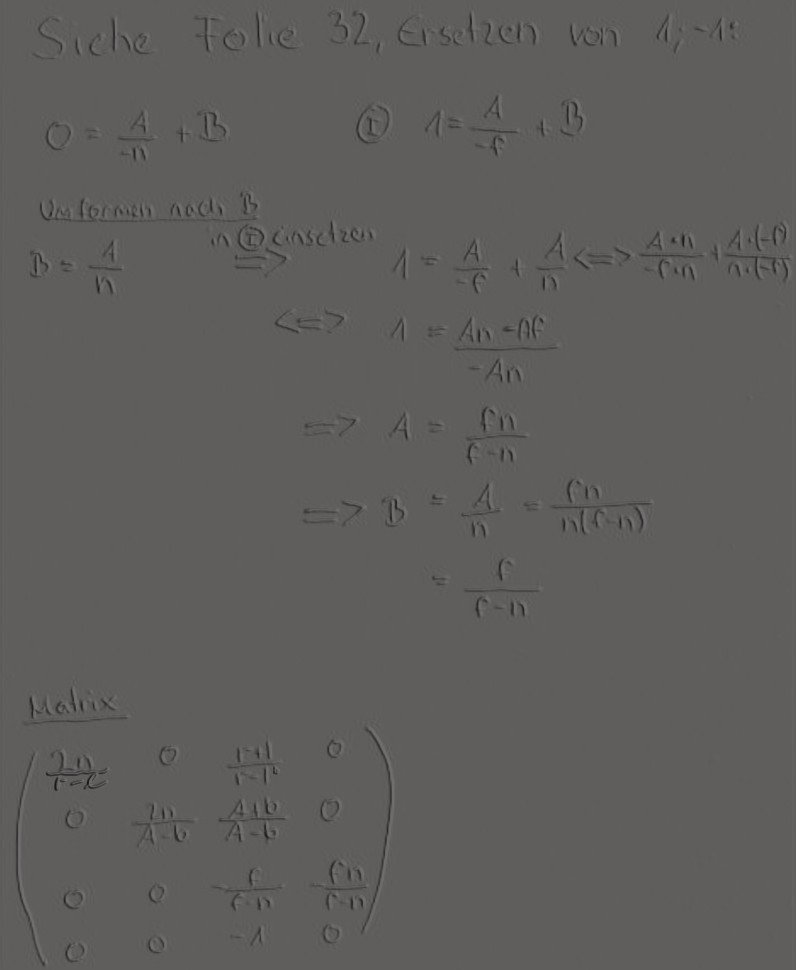 Siehe Folie 32, Ersetzen von 1; -1:
0 = A/-n + B   Ⓘ 1 = A/-f + B
Umformen nach B
B = A/n   in Ⓘ einsetzen ⇒   1 = A/-f + A/n ⇔ A·n/-f·n + A·(-f)/n·(-f)
⇔ 1 = An - Af/-An
⇒ A = fn/f-n
⇒ B = A/n = fn/n(f-n)
= f/f-n
Matrix
2n/r-l 0 r+l/r-l 0
0 2n/A-b A+b/A-b 0
0 0 -f/f-n -fn/f-n
0 0 -1 0